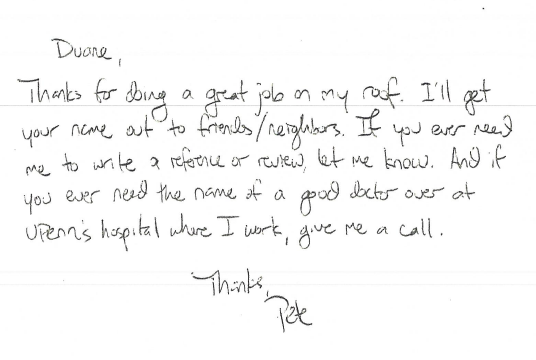 Duane,
Thanks for doing a great job on my roof. I'll get
your name out to friends/neighbors. If you ever need
me to write a reference or review, let me know. And if
you ever need the name of a good doctor over at
UPenn's hospital where I work, give me a call.
Thanks,
Pete